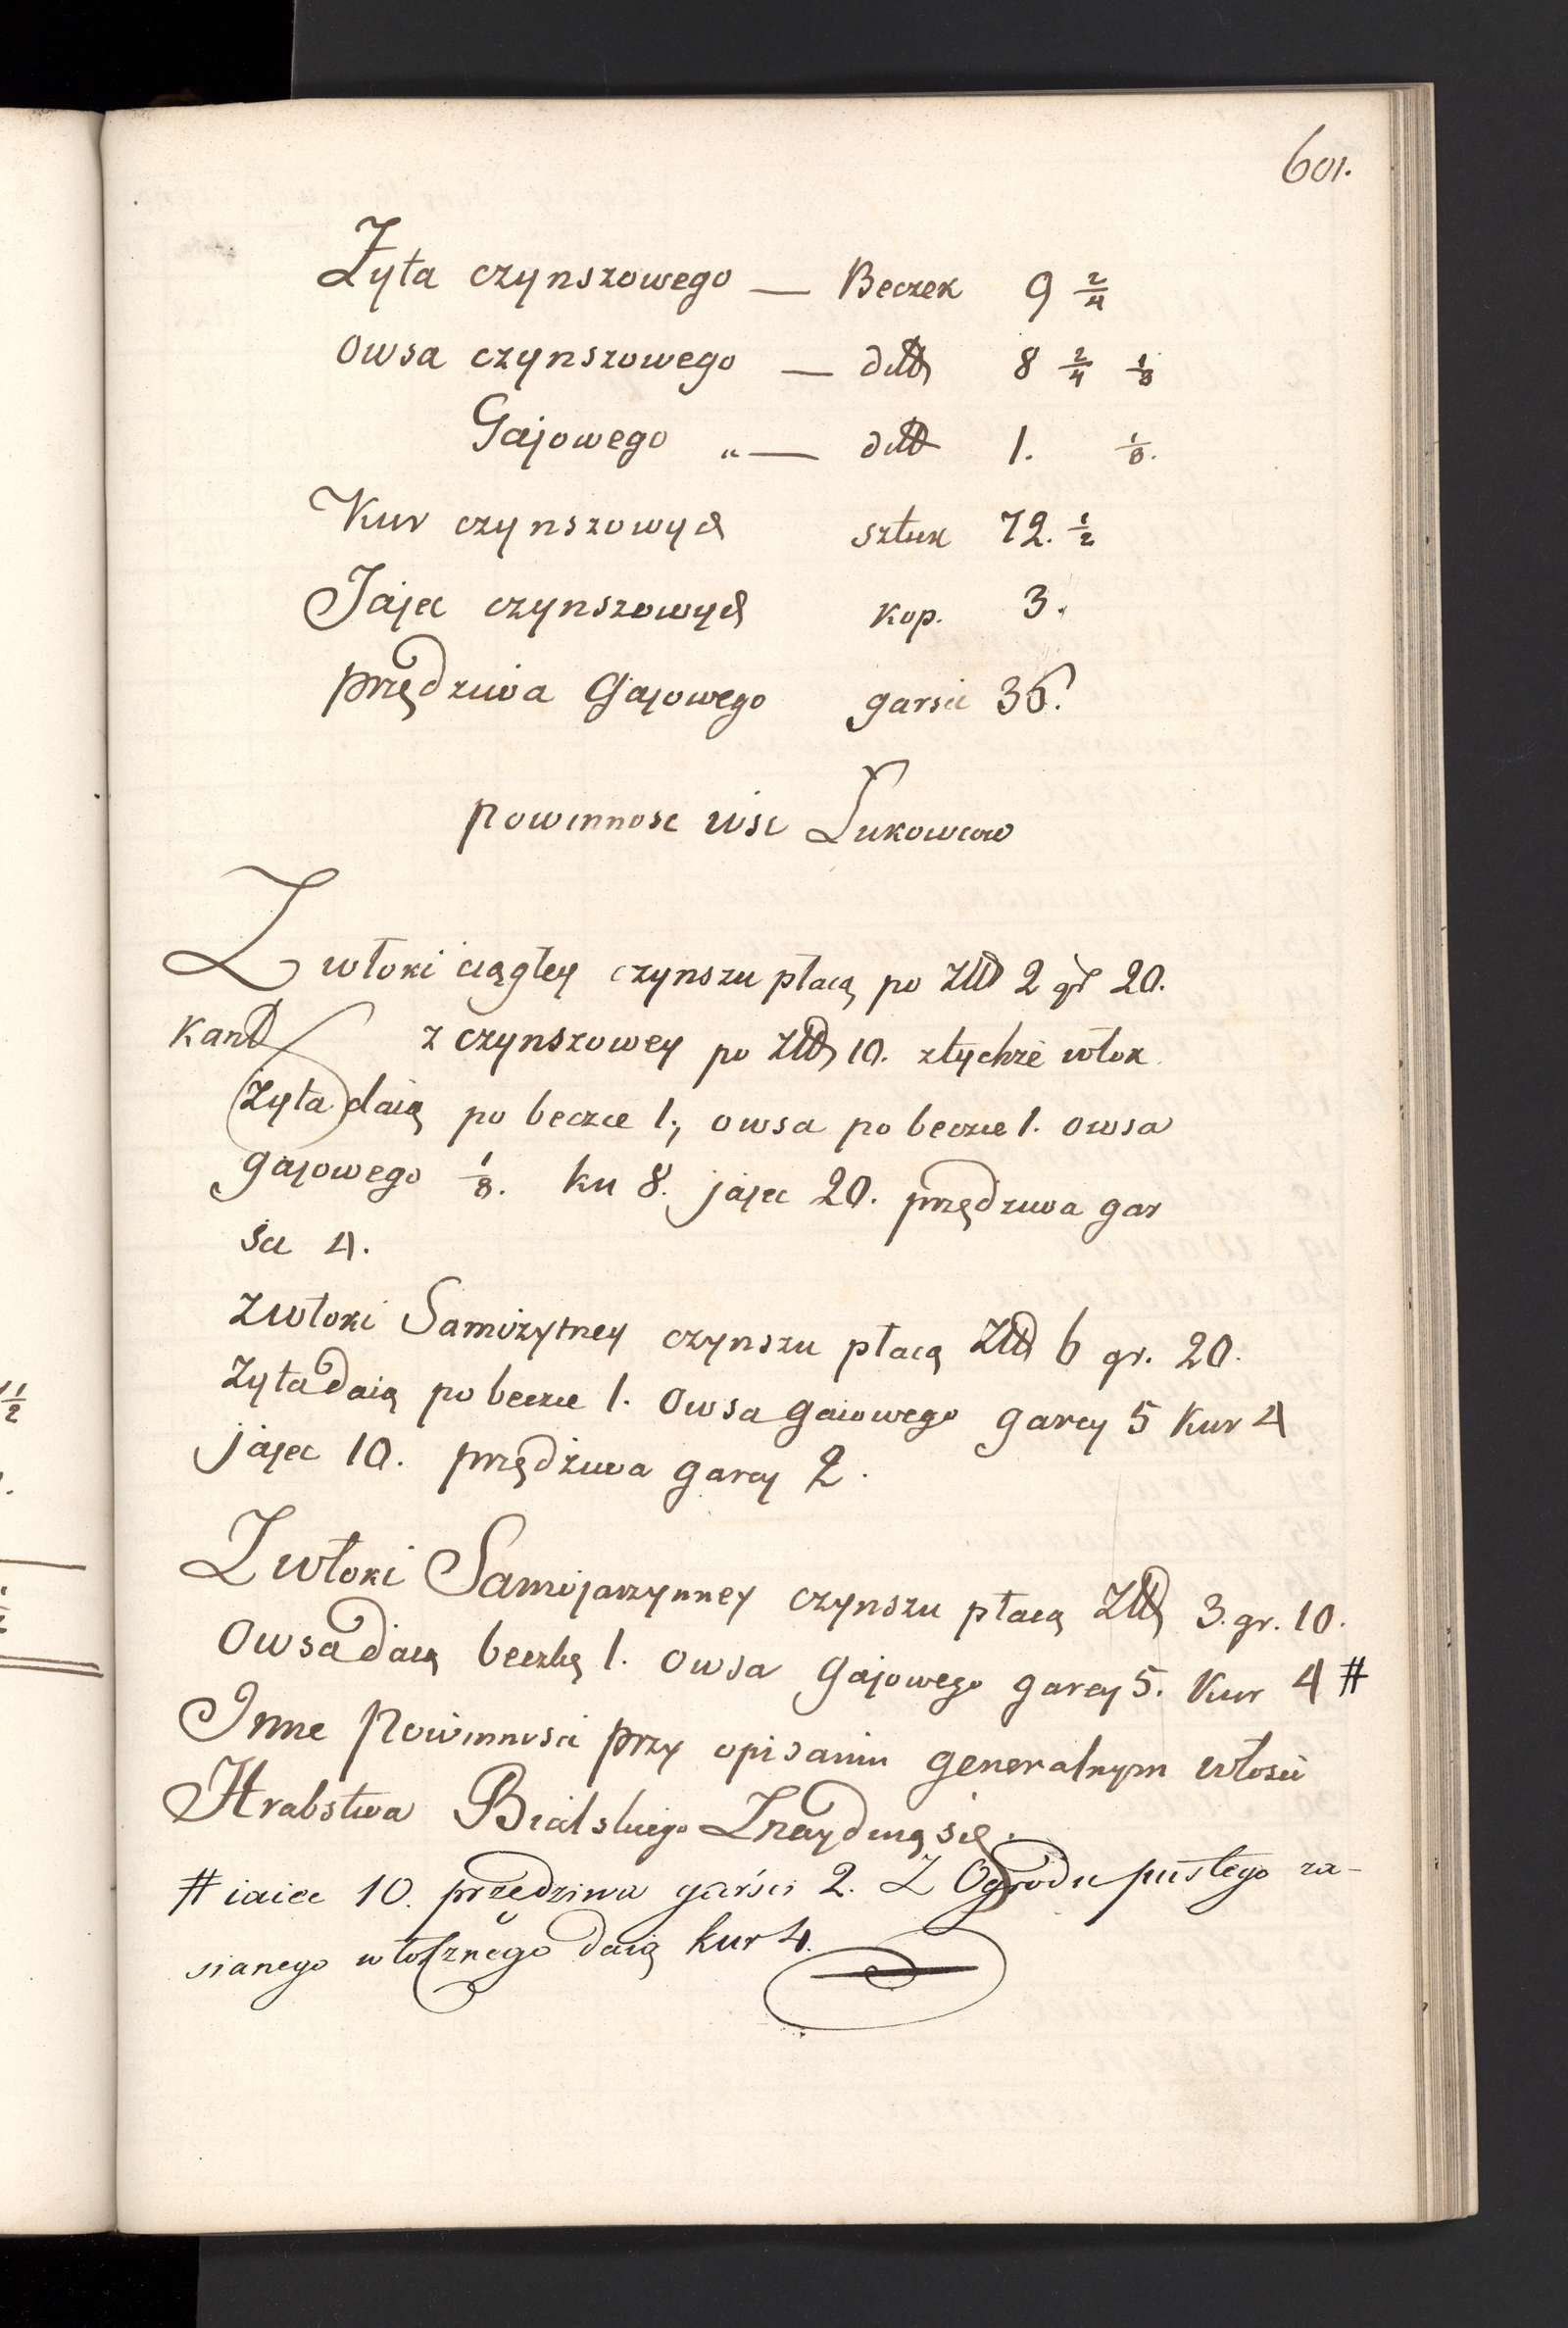 601.
Żyta czynszowego — Beczek 9 2/4
Owsa czynszowego — ditto 8 2/4 1/8
Gajowego „ — ditto 1. 1/8.
Kur czynszowych sztuk 72. 1/2
Jajec czynszowych kop. 3.
przędziwa Gajowego garsci 36.
Powinnosc wsi Łukowców
Z włoki ciągłey czynszu płacą po Złł 2 gr 20.
z czynszowey po Złł 10. z tychże włok
Żyta daią po beczce 1., owsa po beczce 1. owsa
gajowego 1/8. ku 8. jajec 20. przędziwa gar
sci 4.
Z włoki Samożytney czynszu płacą Złł 6 gr. 20.
Żyta daią po beczce 1. Owsa gaiowego garcy 5 Kur 4
jajec 10. przędziwa garcy 2.
Z włoki Samojarzynney czynszu płacą Złł 3. gr. 10.
Owsa daią beczkę 1. owsa gajowego garcy 5. Kur 4 #
Inne Powinnosci przy opisaniu generalnym włosci
Hrabstwa Bialskiego Znaydują się.
# iaiec 10. przędziwa garści 2. Z Ogrodu pustego za-
sianego włocznego daią kur 4.
1/2